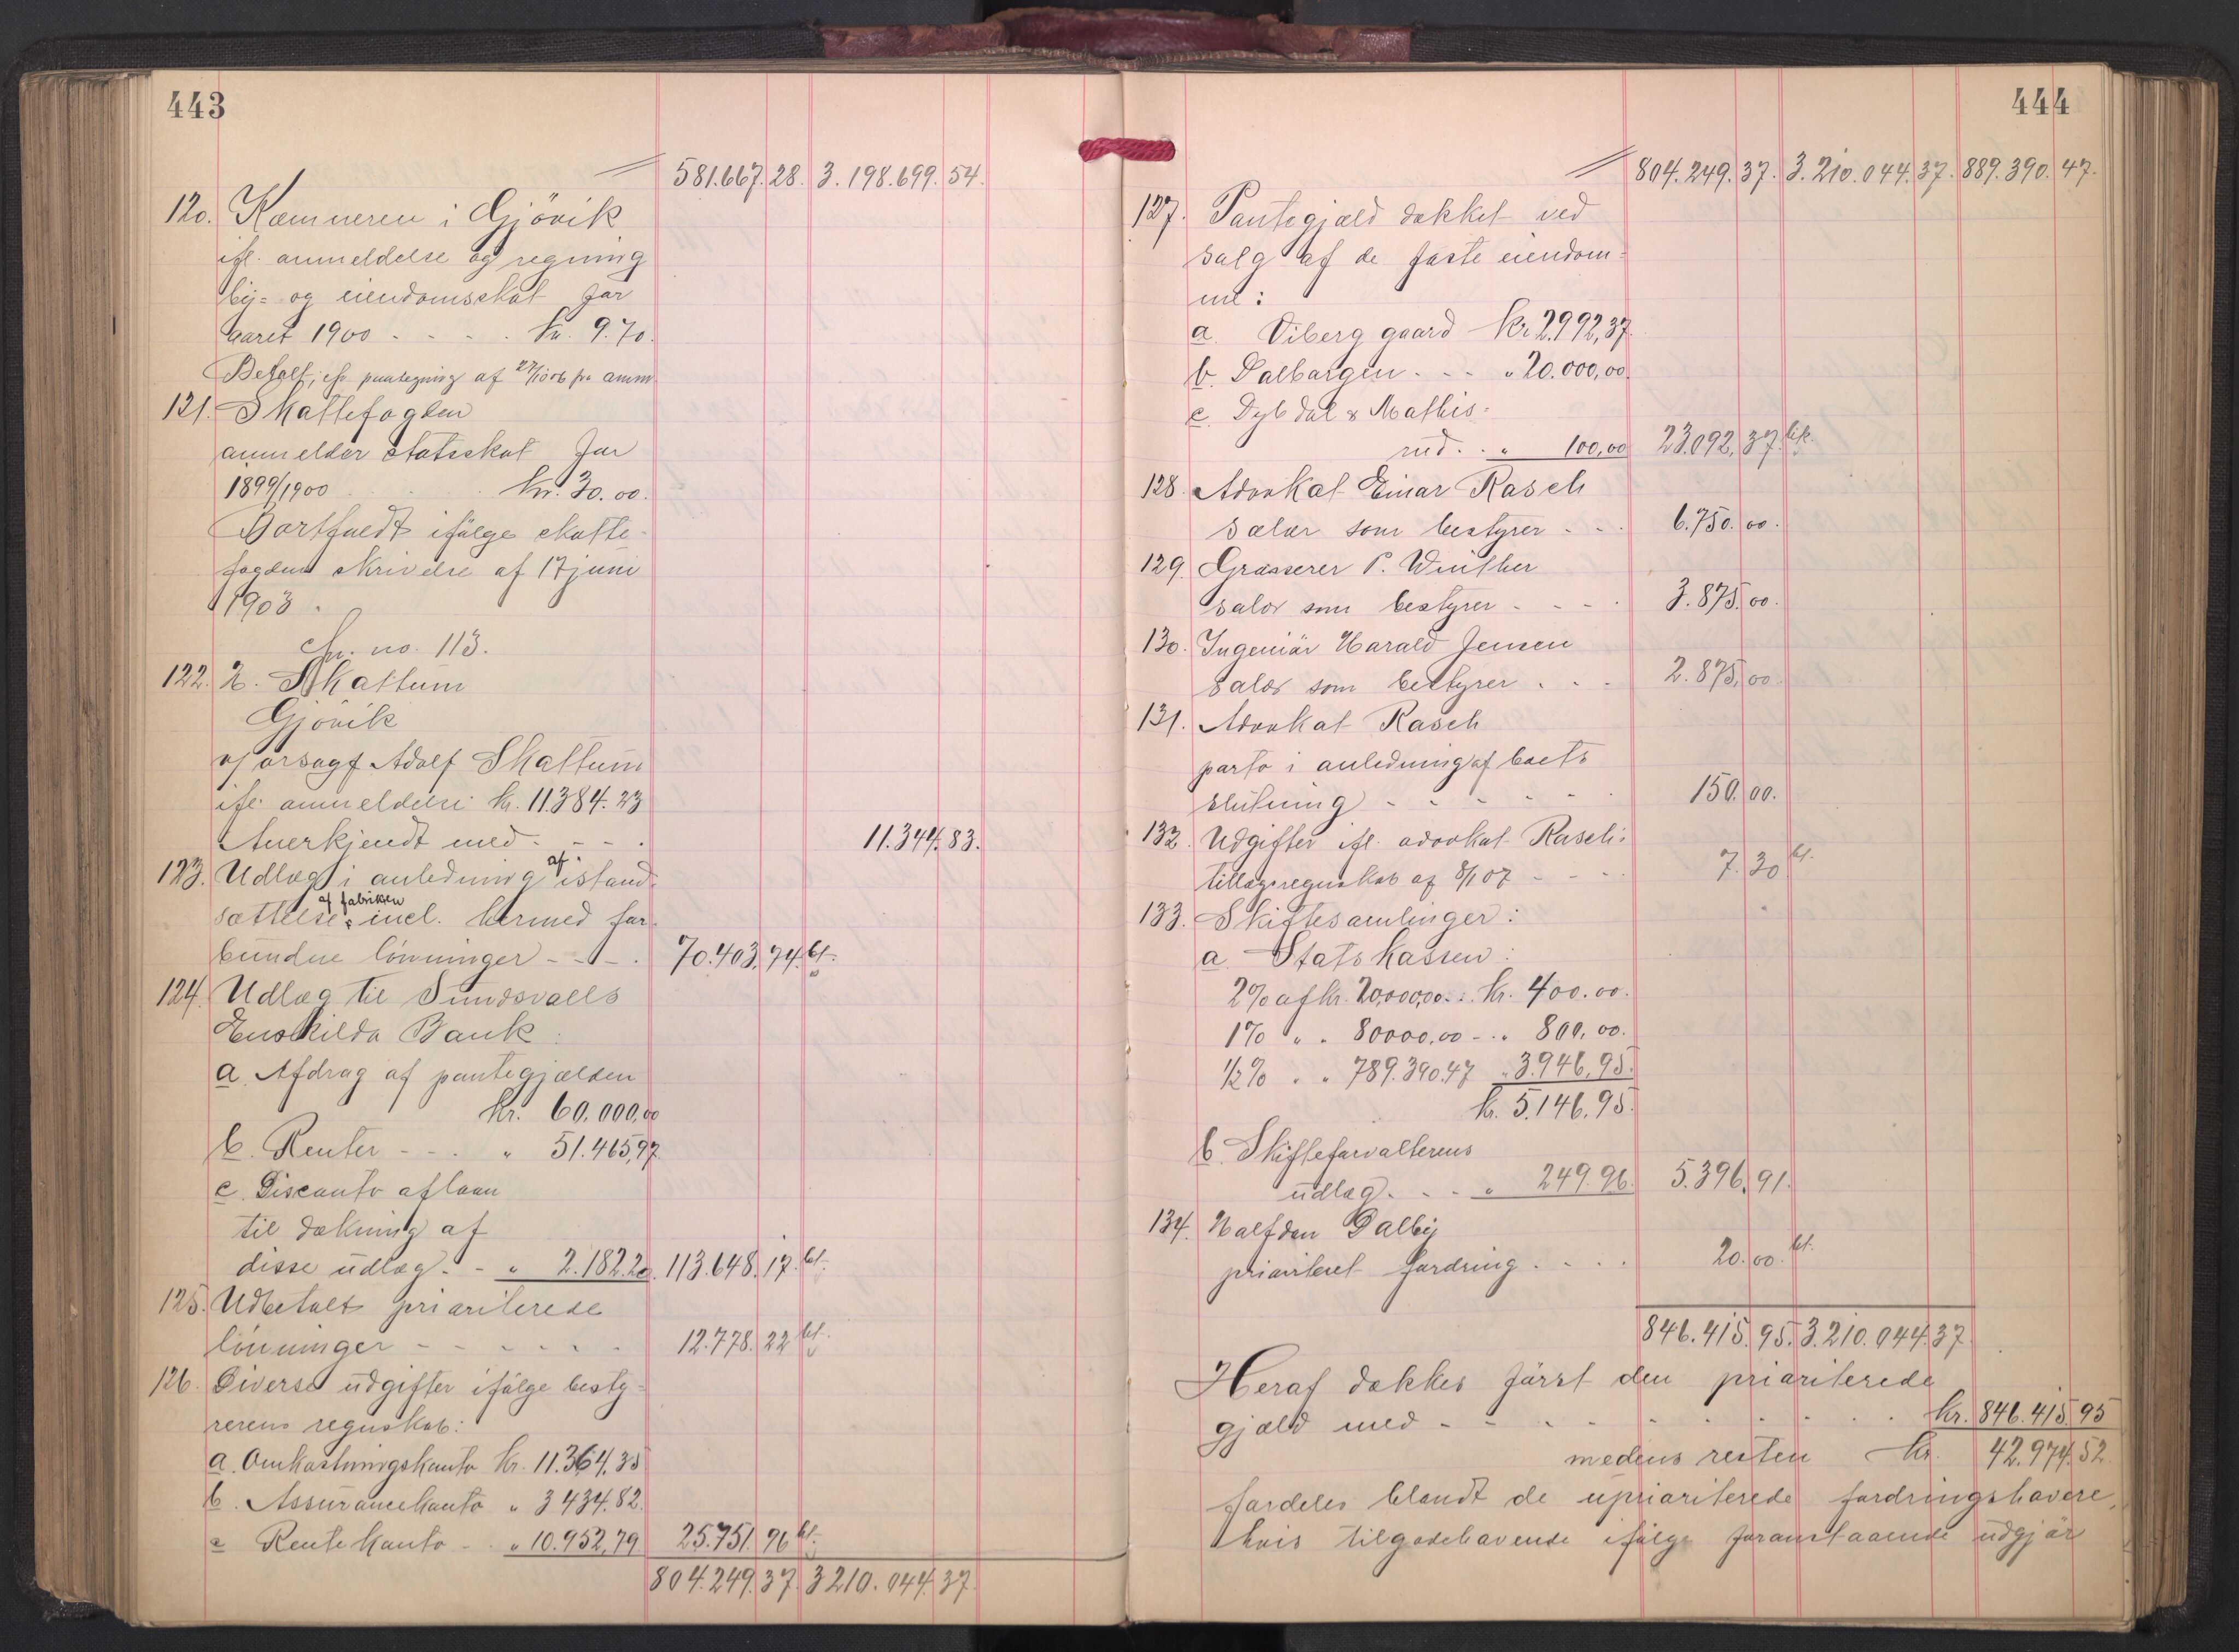 443
581.667.28. 3.198.699.54.
120. Kæmneren i Gjövik
ifl. anmeldelse og regning
by= og eiendomsskat for
aaret 1900 - - - . kr. 9.70.
Betalt, cfr. paategning af 27/10 06 paa anm.
121. Skattefogden
anmelder statsskat for
1899/1900 . . . kr. 30.00.
Bortfaldt ifölge skatte-
fogdens skrivelse af 17 juni
1903.
cfr. no. 113.
122. L. Skattum
Gjövik
v/ orsagf. Adolf Skattum
ifl. anmeldelse kr. 11.384.23
Anerkjendt med - - - . 11.344.83.
123. Udlæg i anledning af istand-
sættelse af fabrikken incl. hermed for-
bundne lönninger - - - . 70.403.74. bt.
124. Udlæg til Sundsvalls
Enskilda Bank:
a. Afdrag af pantegjælden
kr. 60.000,00
b. Renter - - . " 51.465,97
c. Disconto af laan
til dækning af
disse udlæg. - " 2.182.20. 113.648.17. bt.
125. Udbetalt prioriterede
lönninger - - - - . . 12.778.22 bt.
126. Diverse udgifter ifölge besty-
rerens regnskab:
a. Omkostningskonto kr. 11.364.35
b. Assurancekonto " 3434.82.
c Rentekonto - . " 10.952,79 25.751.96 bt.
804.249.37. 3210.044.37.
444
804.249.37. 3.210.044.37. 889.390.47.
127. Pantegjæld dækket ved
salg af de faste eiendom-
me:
a. Viberg gaard kr. 2.992,37.
b. Dalborgen. - - " 20.000,00.
c. Dybdal & Mathis-
rud. . " 100,00 23.092,37. bt.
128. Advokat Einar Rasch
salær som bestyrer - - . 6.750.00.
129. Grosserer P. Winther
salær som bestyrer - - - . 3.875.00.
130. Ingeniör Harald Jensen
salær som bestyrer . - - 2.875,00.
131. Advokat Rasch
porto i anledning af boets
slutning - - - - - . 150.00.
132. Udgifter ifl. advokat Rasch's
tillægsregnskab af 8/1 07 - - - . 7.30 bt.
133. Skiftesamlinger:
a. Statskassen:
2% af kr. 20,000,00. . kr. 400.00.
1% " " 80000,00 - . " 800,00.
1/2% " " 789.390.47 " 3.946,95.
kr. 5.146.95.
b. Skifteforvalterens
udlæg. . - - " 249.96. 5.396,91.
134. Halfdan Dalby
prioriteret fordring . . . . 20.00. bt.
846.415.95. 3.210.044.37
Heraf dækkes först den prioriterede
gjæld med - - - - - . . . . . kr. 846.415.95
medens resten kr. 42.974.52.
fordeles blandt de uprioriterede fordringshavere,
hvis tilgodehavende ifölge foranstaaende udgjör